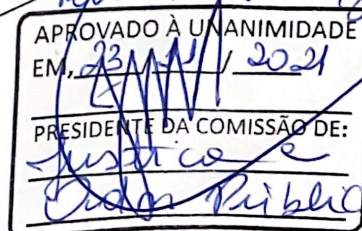 APROVADO À UNANIMIDADE
EM, 23 / / 2021
PRESIDENTE DA COMISSÃO DE:
Justiça e
Públic